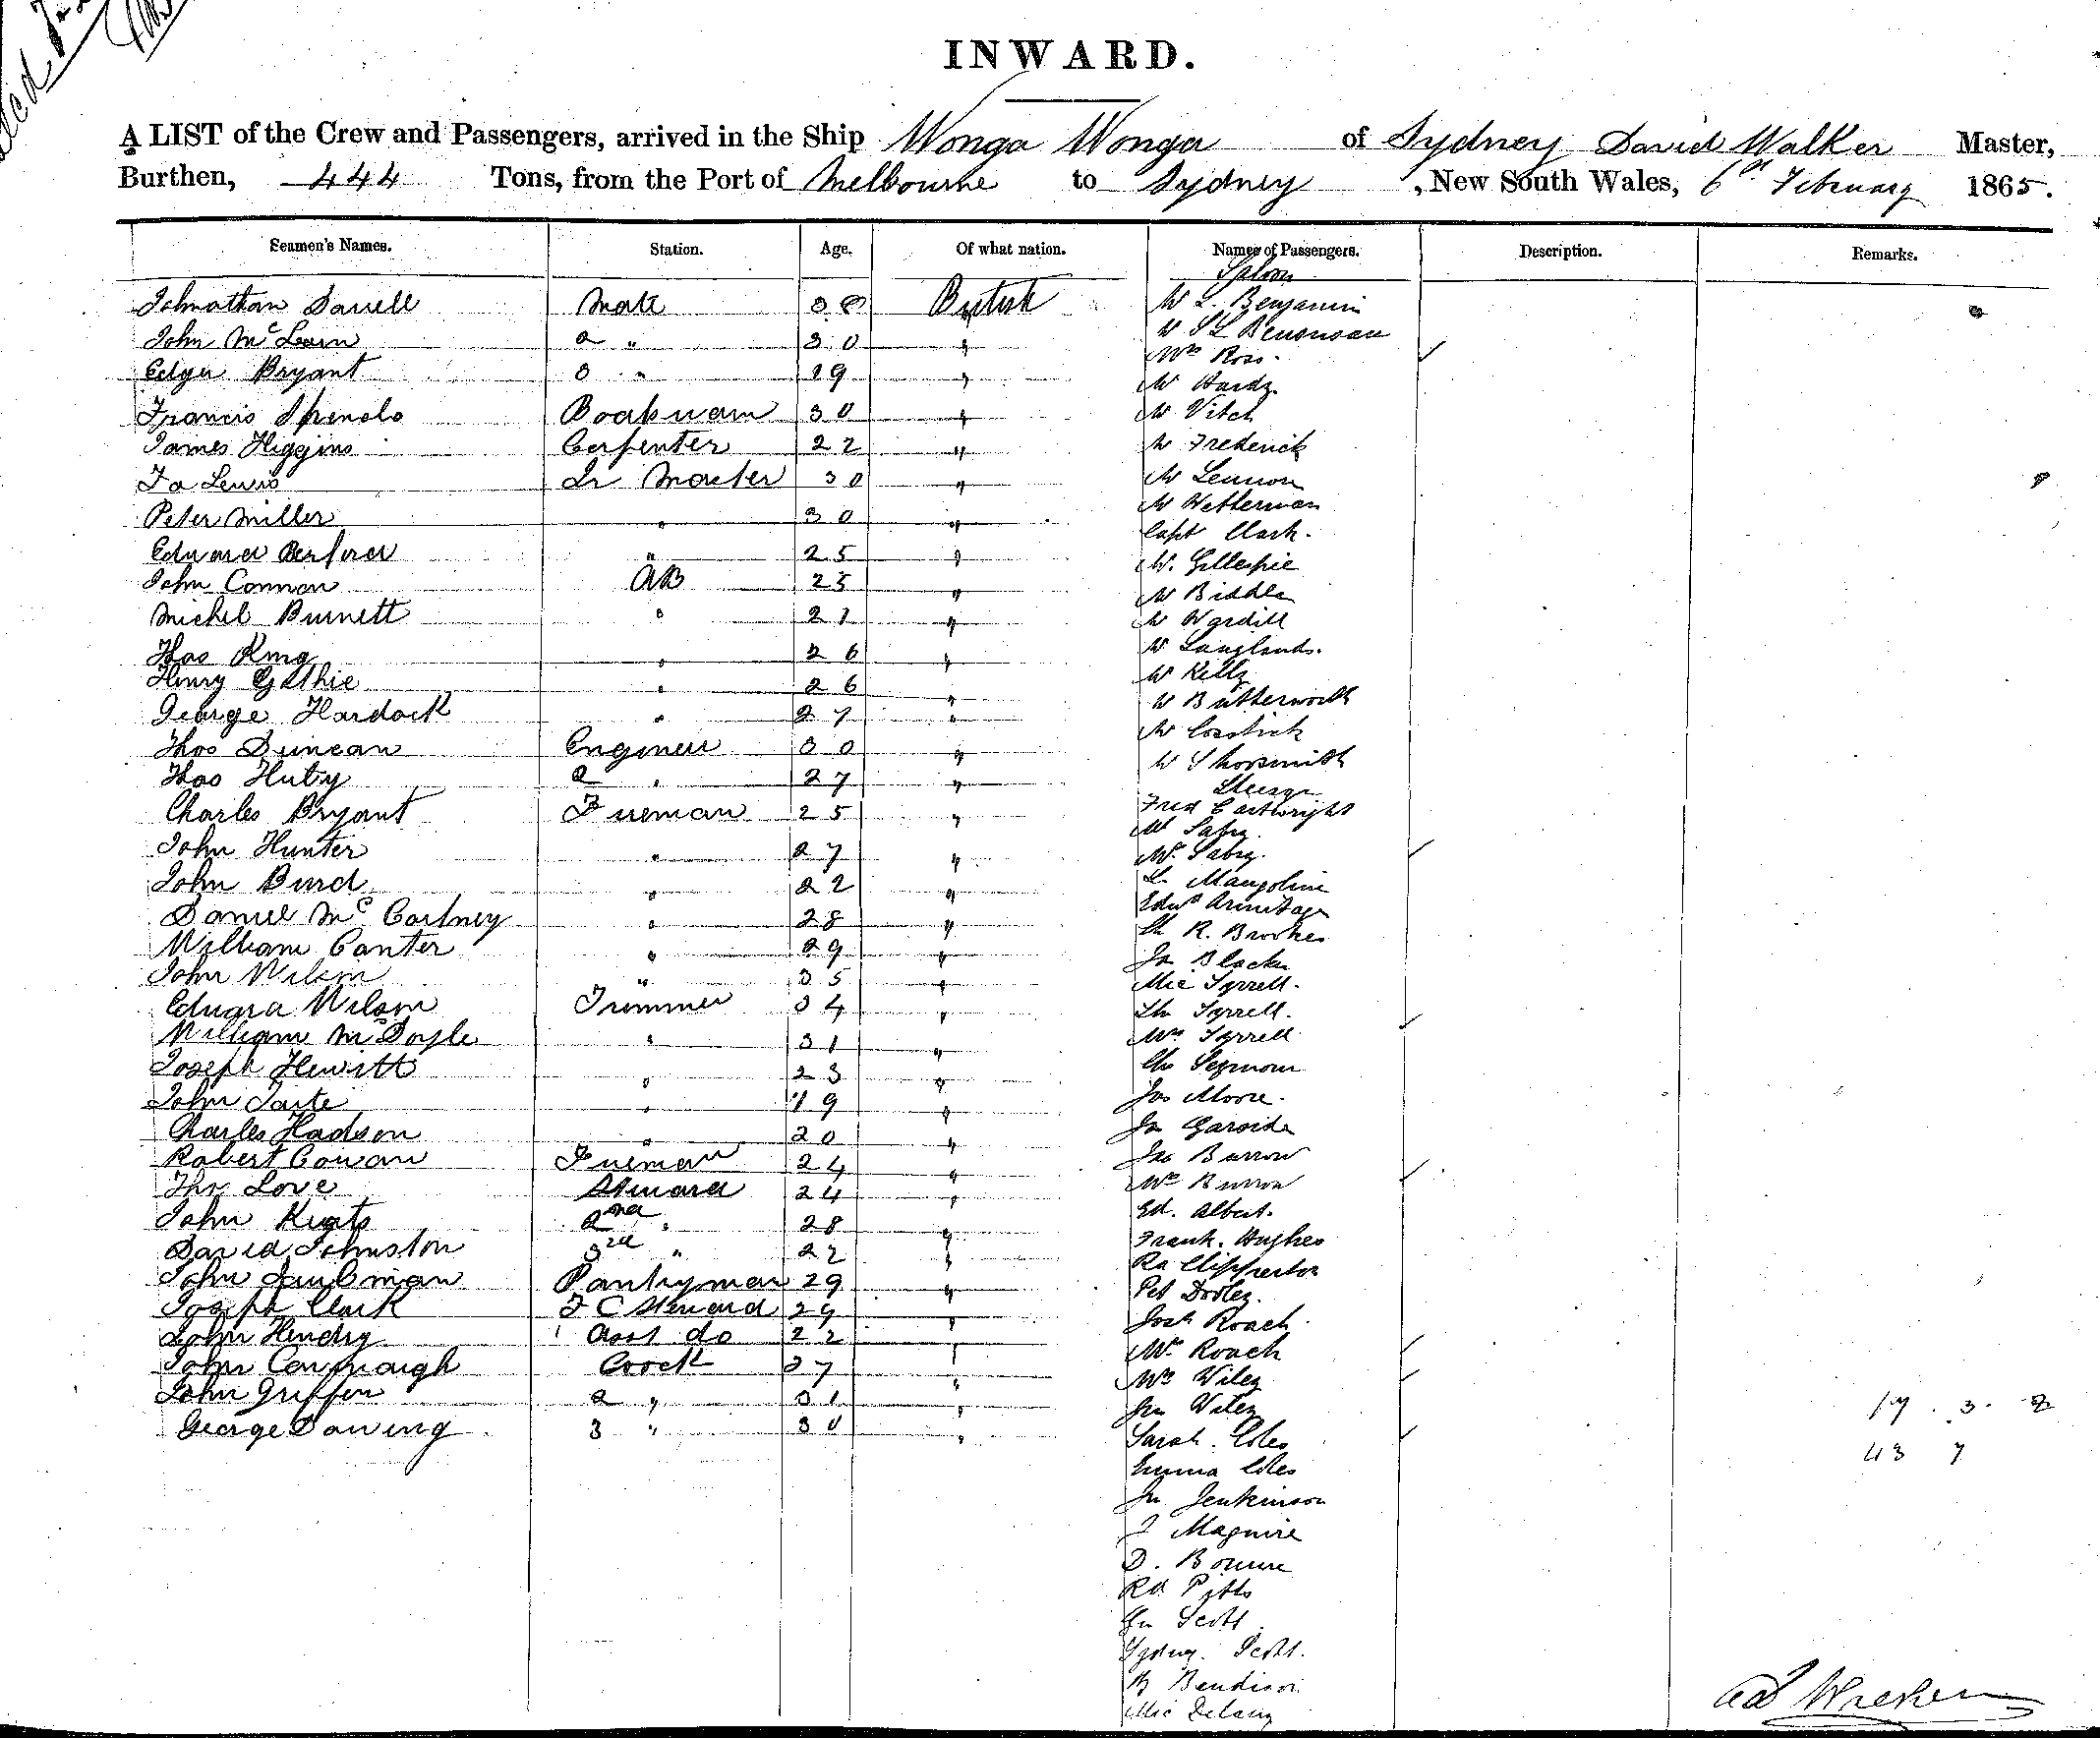 INWARD.
A LIST of the Crew and Passengers, arrived in the Ship Wonga Wonga of Sydney David Walker Master,
Burthen, 444 Tons, from the Port of Melbourne to Sydney, New South Wales, 6th February 1865.
Seamen's Names. Station. Age. Of what nation. Names of Passengers. Description. Remarks.
Saloon
Johnathan Mate 38 British Mr L. Benjamin
John McLean 2 " 30 "
Edgar Bryant 3 " 19 " Mrs Ross
Mr Hardy
Francis 30 " Mr Vitch
James Higgins Carpenter 22 " Mr Frederick
Ja Lewis Lr Master 30 " Mr Lennon
Peter Miller " 30 " Mr Wetherman
Capt Clark.
Edward " 25 " Mr. Gillespie
John Connon AB 25 " Mr Biddle
Michel Burnett " 21 " Mr Wardill
Thos King " 26 " Mr Langlands.
Henry Guthie " 26 " Mr Kelly
George Hardock " 27 " Mr Butterworth
Mr Cosstick
Thos Duncan Engineer 30 " Mr Shorsmith
Thos Huty 2 " 27 " Steerage
Charles Bryant Fireman 25 " Fred Cartwright
John Hunter " 27 "
John Burd " 22 "
Edwd Armitage
Daniel McCartney " 28 " R. Brookes
William Canter " 29 " Jn Black
John Wilson " 35 " Mic Tyrrell.
Edward Wilson Trimmer 34 " Th Tyrrell.
William McDoyle " 31 " Mrs Tyrrell
Joseph Hewitt " 23 " Chs Seymour
John Tarte " 19 " Jas Moore.
Charles Hadson " 20 " Jn Garside
Robert Cowan Fireman 24 " Jas Burrow
Thos Love Steward 24 " Mrs Burrow
John 2nd " 28 " Ed. Albert.
David Johnston 3rd " 22 " Frank. Hughes
Rd Clipperton
John Saulman Pantryman 29 " Pet Dooley.
Joseph Clark F C Steward 29 " Josh Roach.
John Hendry Asst do 22 " Mrs Roach
John Cavanaugh Coock 27 " Mrs Wiley
John Griffin 2 " 31 " Jn Wiley 17 . 3 . 2
George Dowing 3 " 30 " Sarah. Coles
43 7
Emma Coles
Jn Jenkinson
J Maguire
D. Bourne
Rd Pitts
Jn Scott
Sydney. Scott.
Bendison
Mic Delany